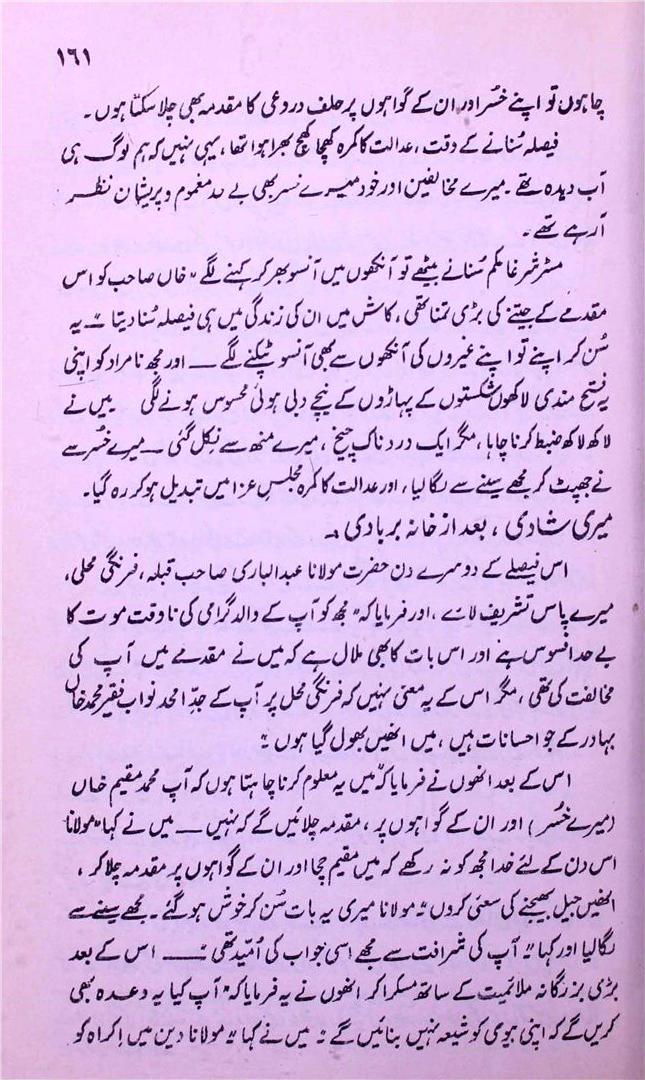 ۱٦۱
چاہوں تو اپنے خسُر اور ان کے گواہوں پر حلف دروغی کا مقدمہ بھی چلا سکتا ہوں۔
فیصلہ سُنانے کے وقت، عدالت کا کمرہ کھچا کھچ بھرا ہوا تھا، یہی نہیں کہ ہم لوگ ہی
آب دیدہ تھے۔ میرے مخالفین اور خود میرے خسر بھی بے حد مغموم و پریشان نظر
آرہے تھے۔
مسٹر شرغا حکم سُنانے بیٹھے تو آنکھوں میں آنسو بھر کر کہنے لگے "خاں صاحب کو اس
مقدمے کے جیتنے کی بڑی تمنا تھی، کاش میں ان کی زندگی میں ہی فیصلہ سُنا دیتا"۔ یہ
سُن کر اپنے تو اپنے غیروں کی آنکھوں سے بھی آنسو ٹپکنے لگے — اور مجھ نامراد کو اپنی
یہ فتح مندی لاکھوں شکستوں کے پہاڑوں کے نیچے دبی ہوئی محسوس ہونے لگی میں نے
لاکھ لاکھ ضبط کرنا چاہا، مگر ایک درد ناک چیخ، میرے منھ سے نکل گئی — میرے خسُر سے
نے جھپٹ کر مجھے سینے سے لگا لیا، اور عدالت کا کمرہ مجلسِ عزا میں تبدیل ہو کر رہ گیا۔
میری شادی، بعد از خانہ بربادی۔
اس فیصلے کے دوسرے دن حضرت مولانا عبدالباری صاحب قبلہ، فرنگی محلی،
میرے پاس تشریف لائے، اور فرمایا کہ "مجھ کو آپ کے والد گرامی کی ناوقت موت کا
بے حد افسوس ہے اور اس بات کا بھی ملال ہے کہ میں نے مقدمے میں آپ کی
مخالفت کی تھی، مگر اس کے یہ معنی نہیں کہ فرنگی محل پر آپ کے جدِّ امجد نواب فقیر محمد خاں
بہادر کے جو احسانات ہیں، میں انھیں بھول گیا ہوں"
اس کے بعد انھوں نے فرمایا کہ "میں یہ معلوم کرنا چاہتا ہوں کہ آپ محمد مقیم خاں
(میرے خسُر) اور ان کے گواہوں پر، مقدمہ چلائیں گے کہ نہیں — میں نے کہا "مولانا
اس دن کے لئے خدا مجھ کو نہ رکھے کہ میں مقیم چچا اور ان کے گواہوں پر مقدمہ چلا کر،
انھیں جیل بھیجنے کی سعئی کروں" مولانا میری یہ بات سُن کر خوش ہو گئے۔ مجھے سینے سے
لگا لیا اور کہا "آپ کی شرافت سے مجھے اسی جواب کی اُمید تھی" — اس کے بعد
بڑی بزرگانہ ملائمیت کے ساتھ مسکرا کر انھوں نے یہ فرمایا کہ "آپ کیا یہ وعدہ بھی
کریں گے کہ اپنی بیوی کو شیعہ نہیں بنائیں گے" میں نے کہا "مولانا دین میں اِکراہ کو